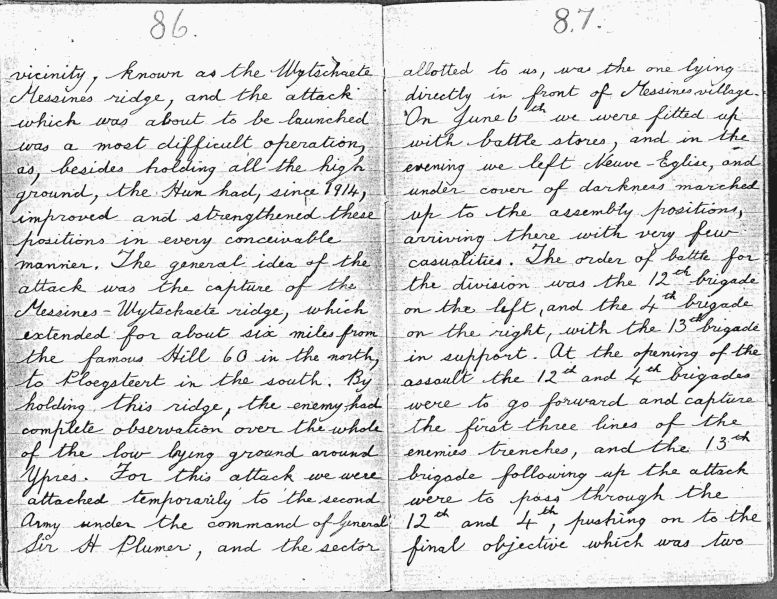 86.
vicinity, known as the Wytschaete
Messines ridge, and the attack
which was about to be launched
was a most difficult operation,
as, besides holding all the high
ground, the Hun had, since 1914,
improved and strengthened these
positions in every conceivable
manner. The general idea of the
attack was the capture of the
Messines-Wytschaete ridge, which
extended for about six miles from
the famous Hill 60 in the north,
to Ploegsteert in the south. By
holding this ridge, the enemy had
complete observation over the whole
of the low lying ground around
Ypres. For this attack we were
attached temporarily to the second
Army under the command of General
Sir H Plumer, and the sector
87.
allotted to us, was the one lying
directly in front of Messines village.
On June 6th we were fitted up
with battle stores, and in the
evening we left Neuve Eglise, and
under cover of darkness marched
up to the assembly positions,
arriving there with very few
casualities. The order of battle for
the division was the 12th brigade
on the left, and the 4th brigade
on the right, with the 13th brigade
in support. At the opening of the
assault the 12th and 4th brigades
were to go forward and capture
the first three lines of the
enemies trenches, and the 13th
brigade following up the attack
were to pass through the
12th and 4th, pushing on to the
final objective which was two